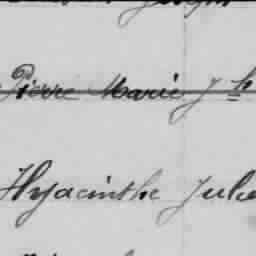 Pierre Marie J
Hyacinthe Julie